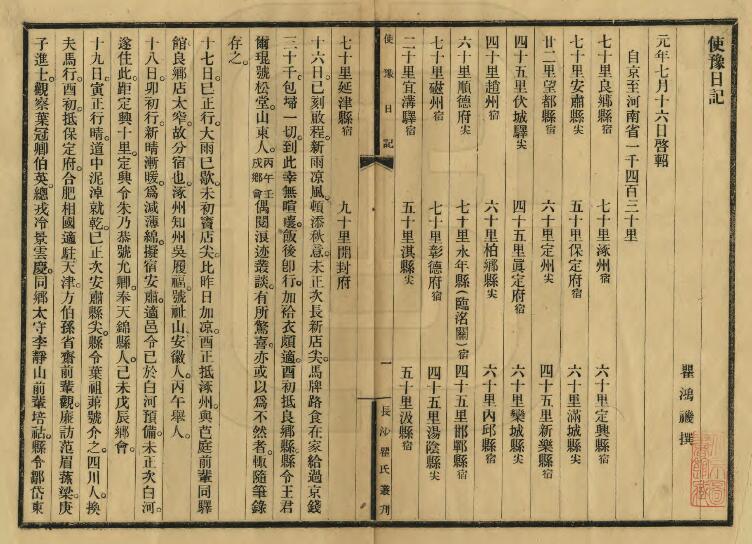 使豫日記
瞿鴻禨撰
元年七月十六日啓軺
自京至河南省一千四百三十里
七十里良鄉縣宿 七十里涿州宿 六十里定興縣宿
七十里安肅縣尖 五十里保定府宿 六十里滿城縣尖
廿二里望都縣宿 六十里定州尖 四十五里新樂縣宿
四十五里伏城驛尖 四十五里眞定府宿 六十里欒城縣尖
四十里趙州宿 六十里柏鄉縣尖 六十里內邱縣宿
六十里順德府尖 七十里永年縣(臨洺關)宿 四十五里邯鄲縣尖
七十里磁州宿 七十里彰德府宿 四十五里湯陰縣尖
二十里宜溝驛宿 五十里淇縣尖 五十里汲縣宿
使豫日記 一 長沙瞿氏叢刊
七十里延津縣宿 九十里開封府
十六日巳刻啟程新雨凉風頓添秋意未正次長新店尖馬牌路食在家給過京錢
三十千包埽一切到此幸無喧嚷飯後卽行加袷衣頗適酉初抵良鄉縣縣令王君
爾琨號松堂山東人丙午壬戌鄉會偶閱浪迹叢談有所驚喜亦或以爲不然者輙隨筆錄
存之
十七日巳正行大雨巳歇未初竇店尖比昨日加凉酉正抵涿州與芭庭前輩同驛
館良鄉店太窄故分宿也涿州知州吳履福號祉山安徽人丙午舉人
十八日卯初行新晴漸暖爲減薄綿擬宿安肅適邑令已於白河預備未正次白河
遂住此距定興十里定興令朱乃恭號允卿奉天錦縣人己未戊辰鄉會
十九日寅正行晴道中泥淖就乾巳正次安肅縣尖縣令葉祖茀號介之四川人換
夫馬行酉初抵保定府合肥相國適駐天津方伯孫省齋前輩觀廉訪范眉蓀梁庚
子進士觀察葉冠卿伯英總戎冷景雲慶同鄉太守李靜山前輩培祜縣令鄒岱東